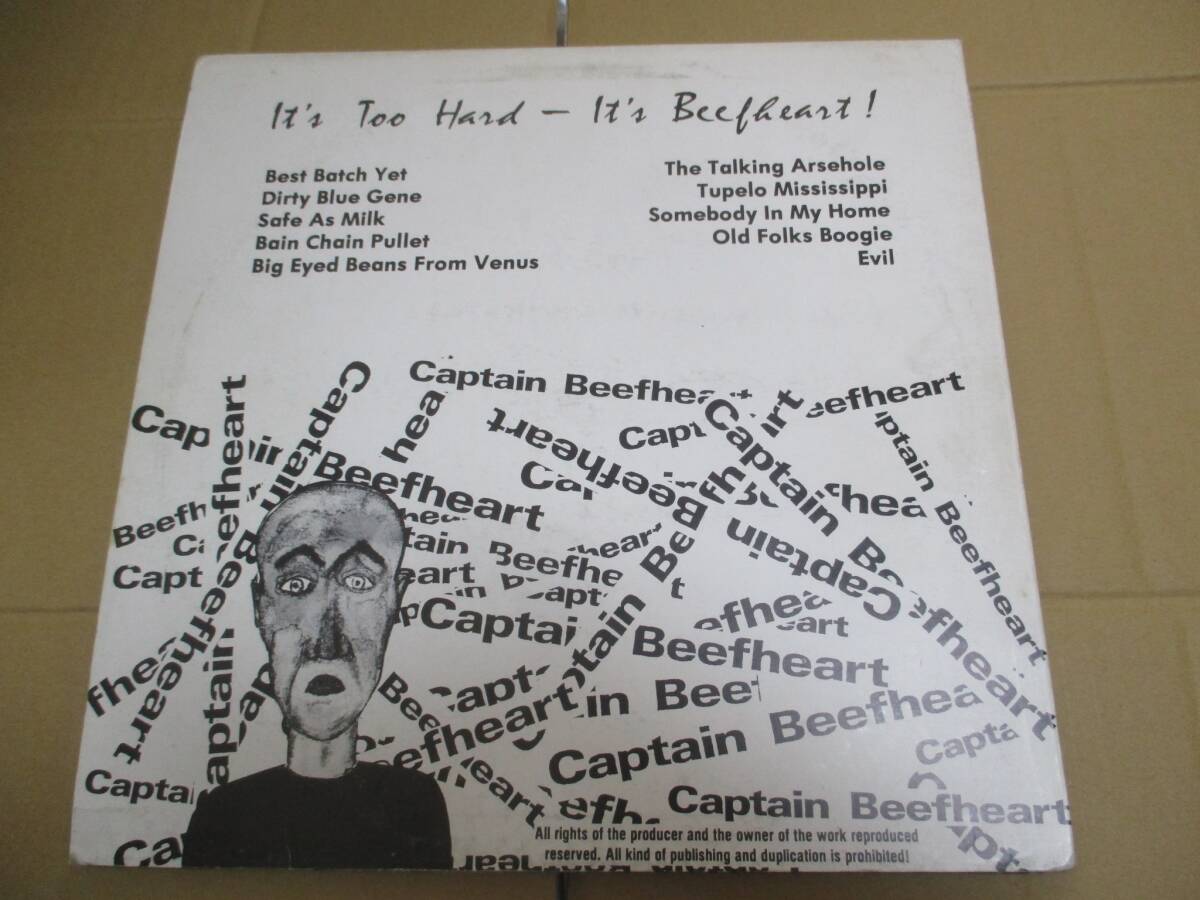 It's Too Hard – It's Beefheart!
Best Batch Yet
Dirty Blue Gene
Safe As Milk
Bain Chain Pullet
Big Eyed Beans From Venus
The Talking Arsehole
Tupelo Mississippi
Somebody In My Home
Old Folks Boogie
Evil
Captain Beefhe
eefheart
Cap
Captain Beefheart
Beefheart
Capt
Captain Beefheart
Captain Beefheart
hea
Captain Beefheart
Beefh
Capt
tain Beefhe
eart
Captai
Beefheart
fhea
Captain Beefheart
in Bee
Captain Beefhea
Capta
Captai
Captain Beefheart
Ca
All rights of the producer and the owner of the work reproduced
reserved. All kind of publishing and duplication is prohibited!